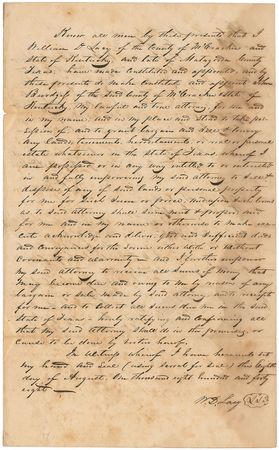 Know all men by these presents that I
William D. Lacy of the County of McCracken and
State of Kentucky and late of Matagorda County
Texas have made constituted and appointed and by
these presents do make constitute and appoint
of the said County of McCracken State of
Kentucky my lawful and true attorney for me and
in my name and in my place and stead to take pos-
session of and to grant bargain and sell
any lands tenements hereditaments or real or personal
estate whatsoever in the State of Texas whereof I
am possessed or in any way entitled to or interested
in and fully empowering my said attorney to sell &
dispose of any of said lands or personal property
for me for such sum or price and upon such terms
as to said attorney shall seem just & proper and
for me and in my name or otherwise to make exe-
cute acknowledge and deliver good and sufficient deeds
and conveyances for the same either with or without
Covenants and warranty and I further empower
my said attorney to receive all sums of money that
may become due and owing to me by reason of any
bargain or sale made by said attorney and receipt
for me and to collect all sums due me in the said
State of Texas hereby ratifying and confirming all
that my said attorney shall do in the premises or
cause to be done by virtue hereof.
In witness whereof I have hereunto set
my hand and seal (using scroll for seal) this eighth
day of August One thousand eight hundred and forty
eight
W. D. Lacy